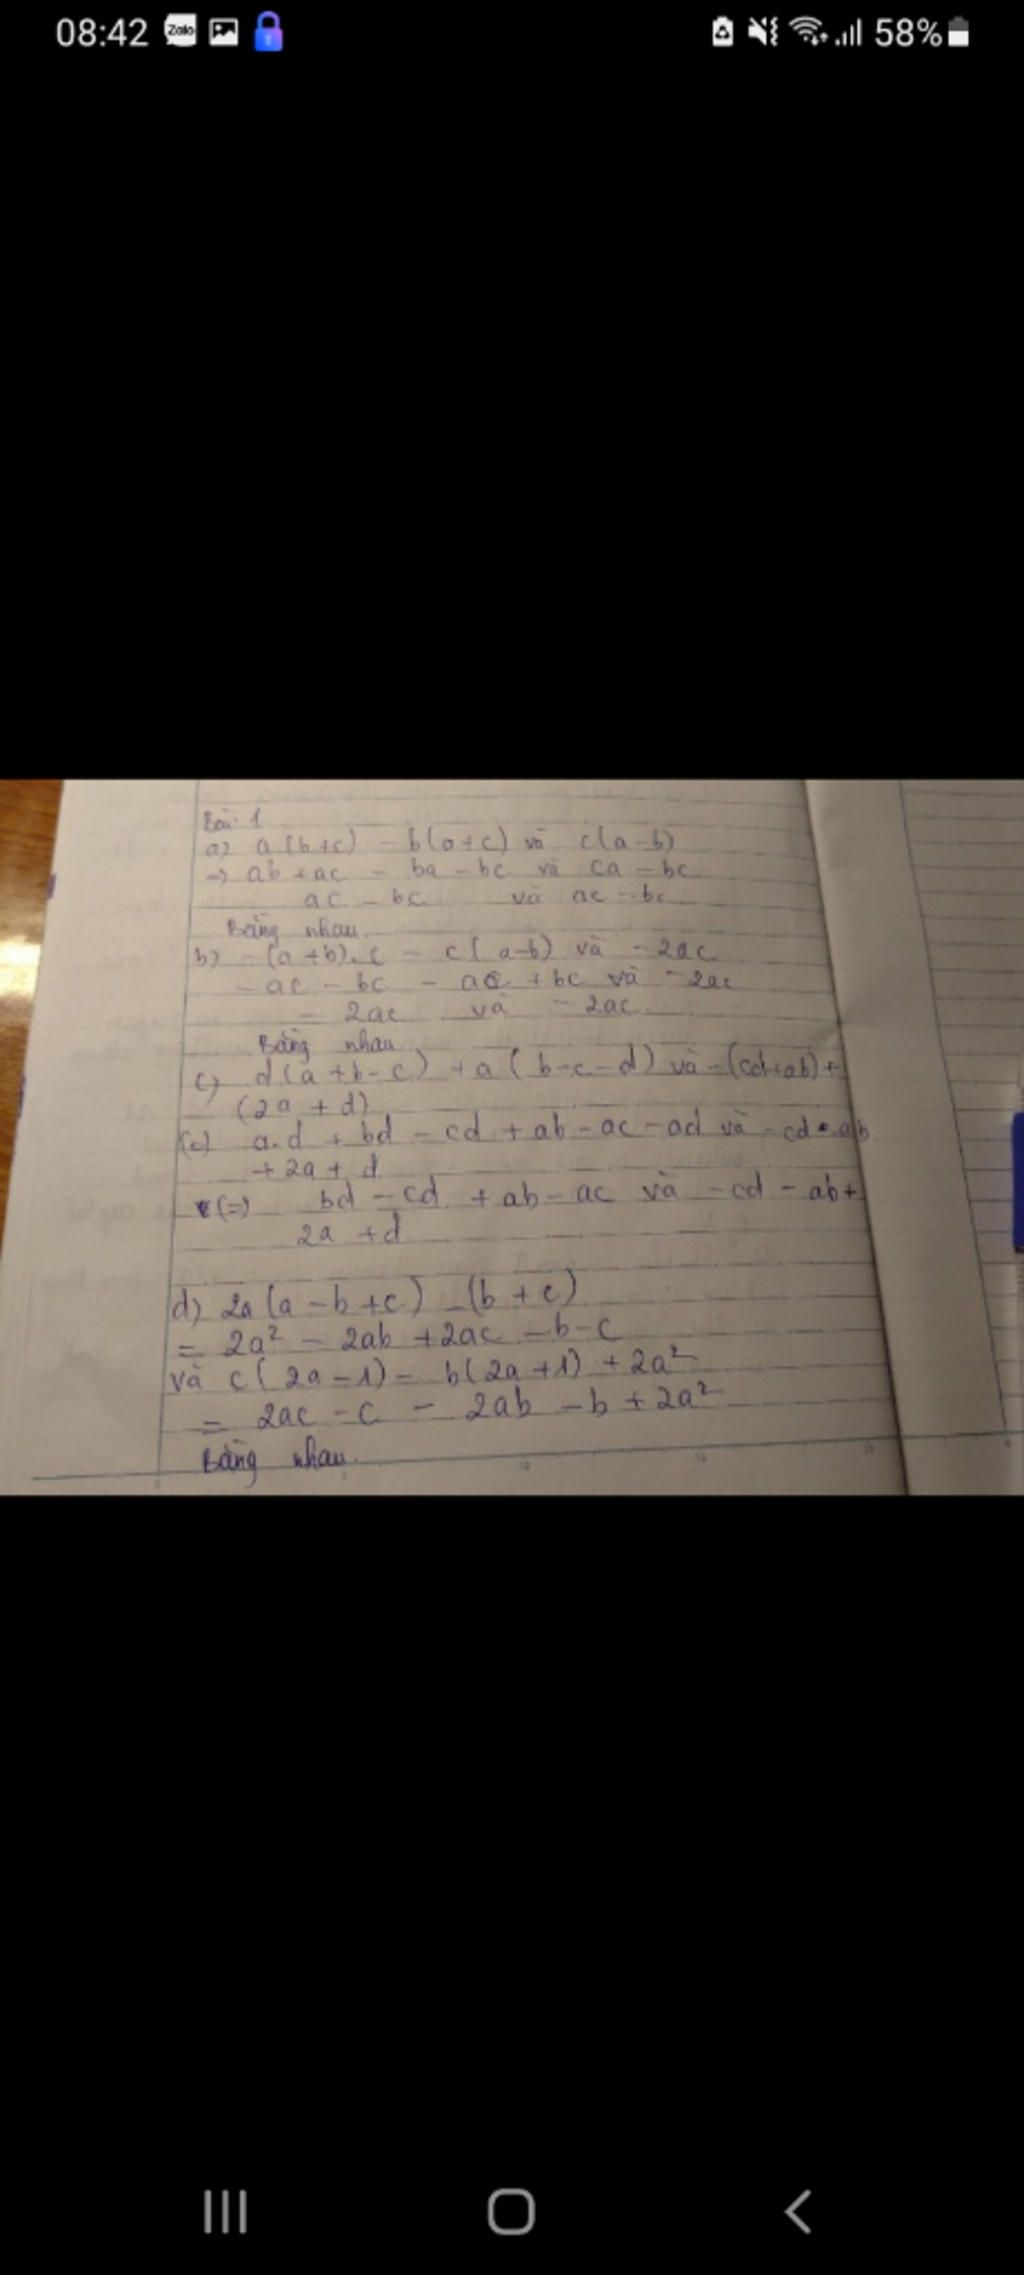 08:42 Zalo 58%
Bài 1
a) a(b+c) - b(a+c) và c(a-b)
=> ab + ac - ba - bc và ca - bc
ac - bc và ac - bc
Bằng nhau.
b) -(a+b).c - c(a-b) và -2ac
-ac - bc - ac + bc và -2ac
- 2ac và -2ac
Bằng nhau
c) d(a+b-c) + a(b-c-d) và -(cd+ab)+
(2a + d)
a.d + bd - cd + ab - ac - ad và -cd - ab
+ 2a + d
(=) bd - cd + ab - ac và -cd - ab +
2a + d
d) 2a(a-b+c) - (b+c)
= 2a² - 2ab + 2ac - b - c
và c(2a-1) - b(2a+1) + 2a²
= 2ac - c - 2ab - b + 2a²
Bằng nhau.